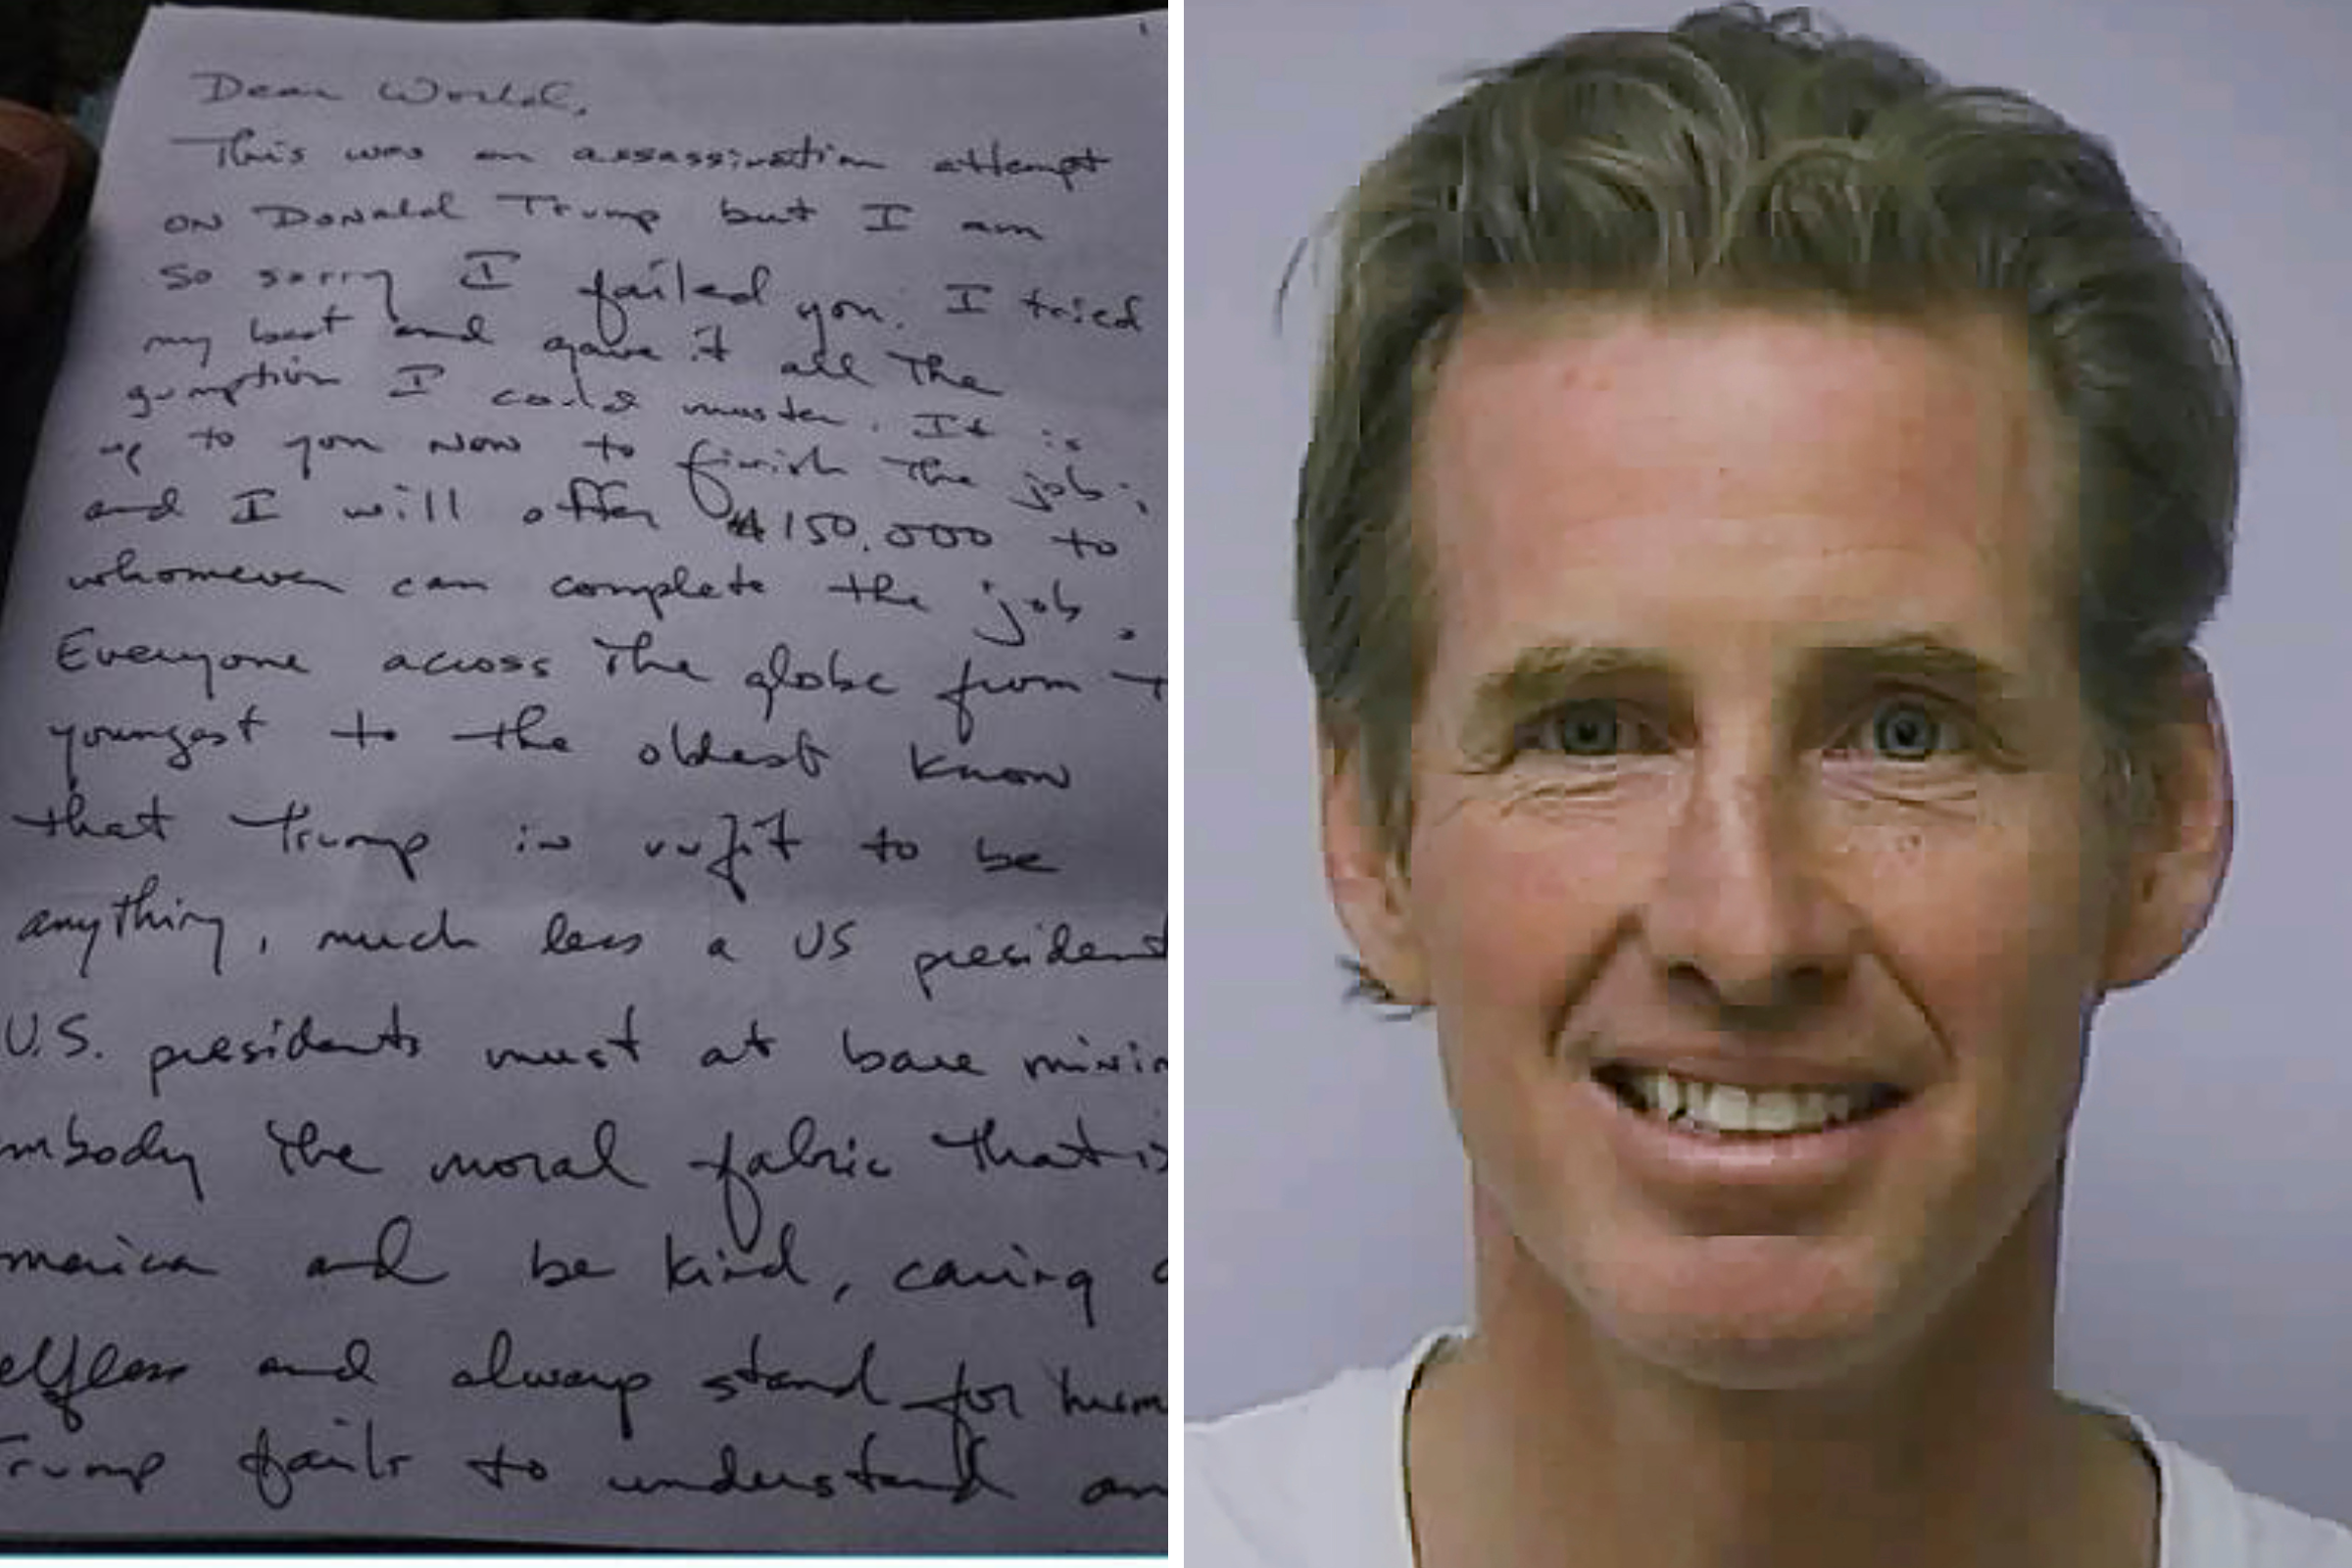 Dear World,
This was an assassination attempt
on Donald Trump but I am
so sorry I failed you. I tried
my best and gave it all the
gumption I could muster. It is
up to you now to finish the job;
and I will offer $150,000 to
whomever can complete the job.
Everyone across the globe from
youngest to the oldest know
that Trump is unfit to be
anything, much less a US president
U.S. presidents must at bare
mbody the moral fabric that is
merica and be kind, caring
elfless and always stand for
Trump fails to understand